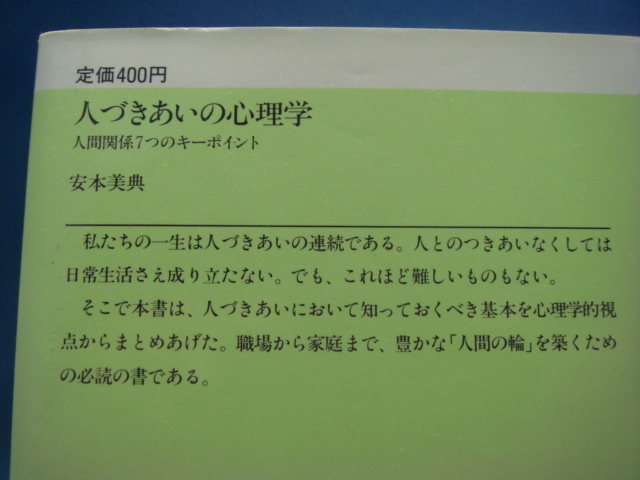 定価400円
人づきあいの心理学
人間関係7つのキーポイント
安本美典
私たちの一生は人づきあいの連続である。人とのつきあいなくしては
日常生活さえ成り立たない。でも、これほど難しいものもない。
そこで本書は、人づきあいにおいて知っておくべき基本を心理学的視
点からまとめあげた。職場から家庭まで、豊かな「人間の輪」を築くため
の必読の書である。